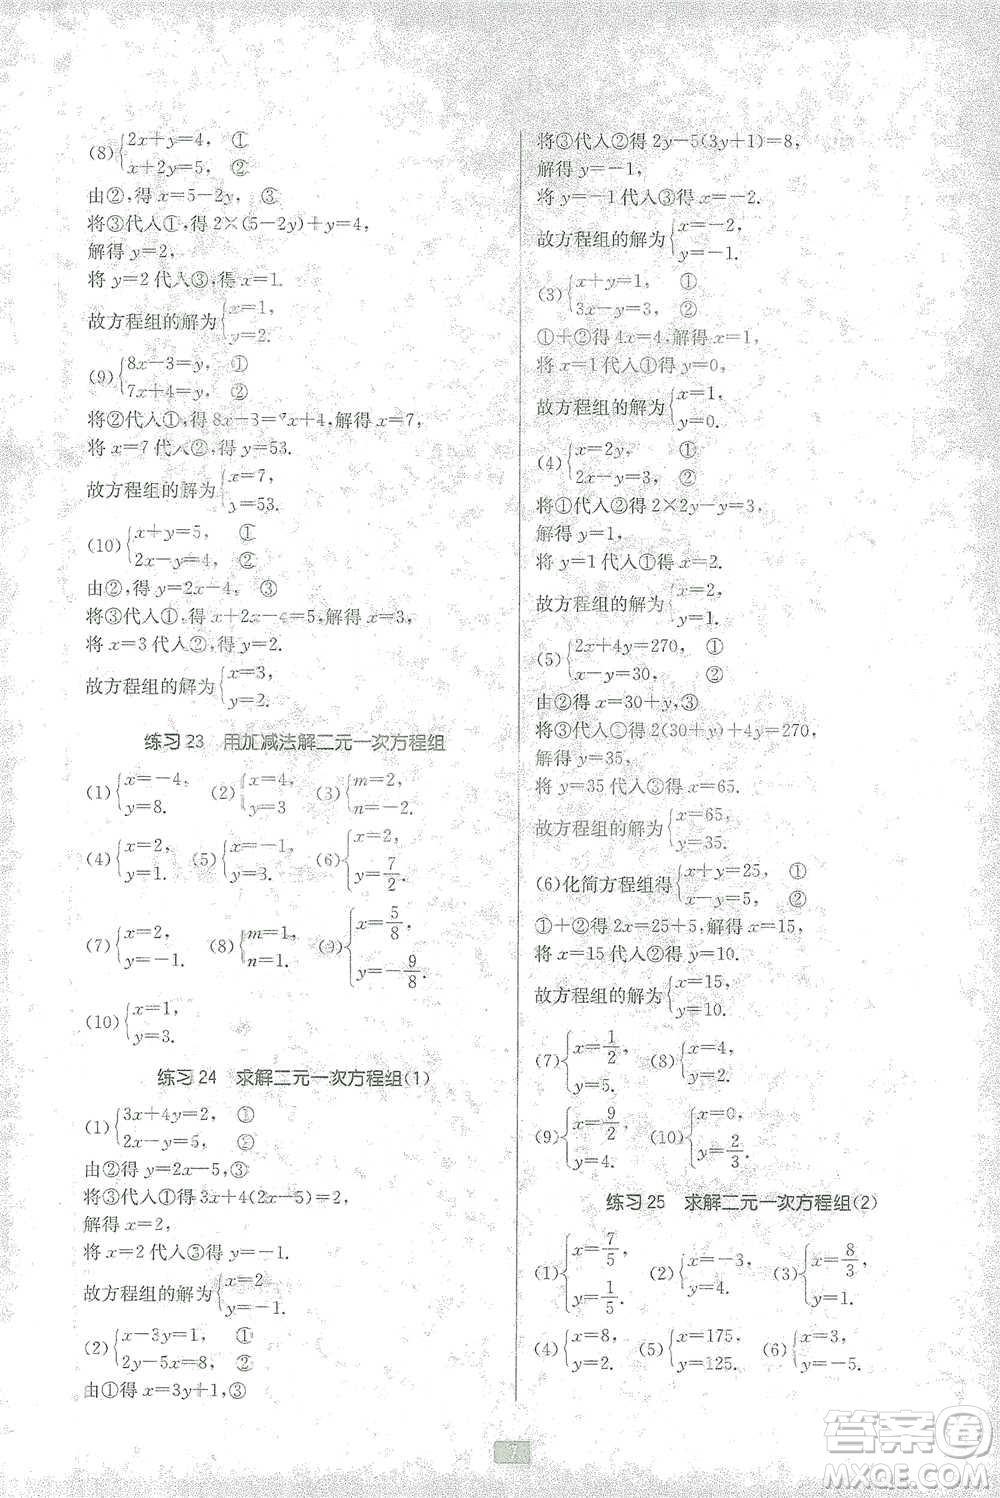 (8){2x+y=4, ①
x+2y=5, ②
由②,得 x=5-2y, ③
将③代入①,得 2×(5-2y)+y=4,
解得 y=2,
将 y=2 代入③,得 x=1.
故方程组的解为{x=1,
y=2.
(9){8x-3=y, ①
7x+4=y, ②
将②代入①,得 8x-3=7x+4,解得 x=7,
将 x=7 代入②,得 y=53.
故方程组的解为{x=7,
y=53.
(10){x+y=5, ①
2x-y=4, ②
由②,得 y=2x-4, ③
将③代入①,得 x+2x-4=5,解得 x=3,
将 x=3 代入②,得 y=2.
故方程组的解为{x=3,
y=2.
练习 23 用加减法解二元一次方程组
(1){x=-4, (2){x=4, (3){m=2,
y=8. y=3 n=-2.
(4){x=2, (5){x=-1, (6){x=2,
y=1. y=1. y=7/2.
(7){x=2, (8){m=1, (9){x=5/8,
y=-1. n=1. y=-9/8.
(10){x=1,
y=3.
练习 24 求解二元一次方程组(1)
(1){3x+4y=2, ①
2x-y=5, ②
由②得 y=2x-5,③
将③代入①得 3x+4(2x-5)=2,
解得 x=2,
将 x=2 代入③得 y=-1.
故方程组的解为{x=2
y=-1.
(2){x-3y=1, ①
2y-5x=8, ②
由①得 x=3y+1,③
将③代入②得 2y-5(3y+1)=8,
解得 y=-1,
将 y=-1 代入③得 x=-2.
故方程组的解为{x=-2,
y=-1.
(3){x+y=1, ①
3x-y=3, ②
①+②得 4x=4,解得 x=1,
将 x=1 代入①得 y=0.
故方程组的解为{x=1,
y=0.
(4){x=2y, ①
2x-y=3, ②
将①代入②得 2×2y-y=3,
解得 y=1,
将 y=1 代入①得 x=2.
故方程组的解为{x=2,
y=1.
(5){2x+4y=270, ①
x-y=30, ②
由②得 x=30+y,③
将③代入①得 2(30+y)+4y=270,
解得 y=35,
将 y=35 代入③得 x=65.
故方程组的解为{x=65,
y=35.
(6)化简方程组得{x+y=25, ①
x-y=5, ②
①+②得 2x=25+5,解得 x=15,
将 x=15 代入②得 y=10.
故方程组的解为{x=15,
y=10.
(7){x=1/2, (8){x=4,
y=5. y=2.
(9){x=9/2, (10){x=0,
y=4. y=2/3.
练习 25 求解二元一次方程组(2)
(1){x=7/5, (2){x=-3, (3){x=8/3,
y=1/5. y=4. y=1.
(4){x=8, (5){x=175, (6){x=3,
y=2. y=125. y=-5.
7
答案卷
MXQE.COM